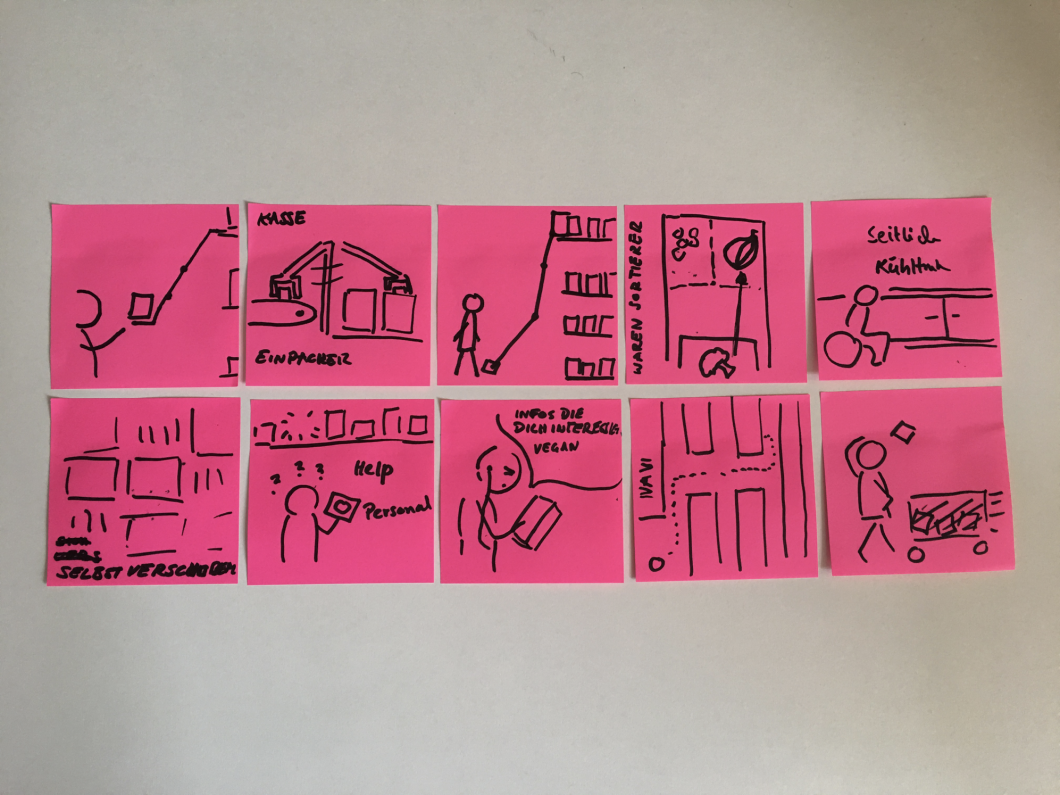 KASSE
EINPACKER
WAREN SORTIERER
Seitlich
SELBST VERSCHOBEN
? ? ? ?
Help
Personal
INFOS DIE
DICH INTERESSIE
VEGAN
NAVI